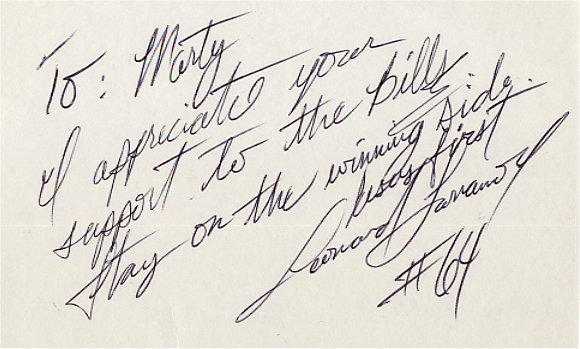 To: Marty
I appreciate your
support to the Bills.
Stay on the winning side.
Jesus first
Leonard
#64